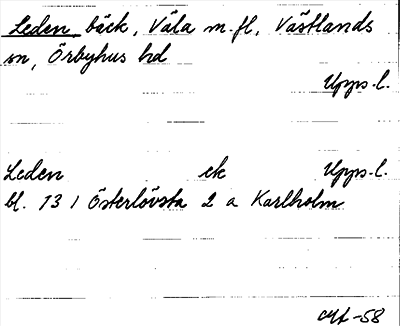 Leden bäck, Väla m.fl, Västlands
sn, Örbyhus hd
Upps-l.
Leden ek Upps-l.
bl. 13 1 Österlövsta 2 a Karlholm
-58